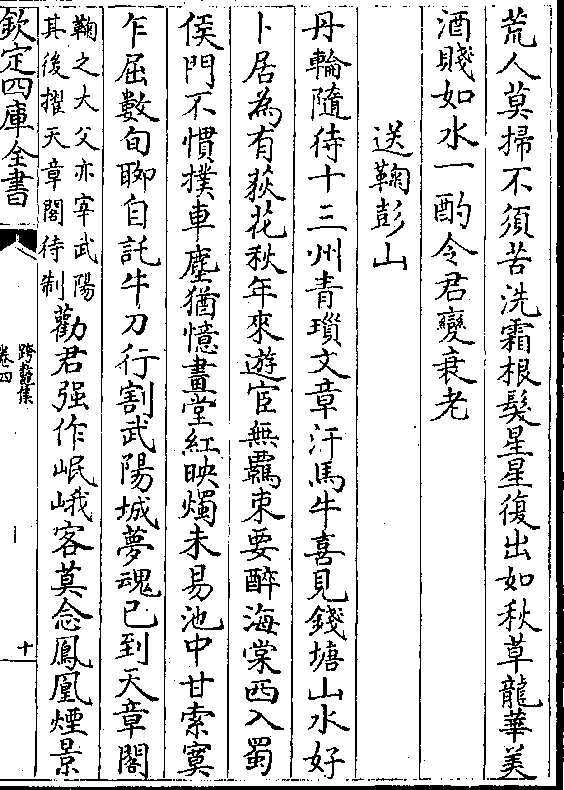 荒人莫掃不須苦洗霜根髮星星復出如秋草龍華美
酒賤如水一酌令君變衰老
送鞠彭山
丹輪隨待十三州青瑣文章汗馬牛喜見錢塘山水好
卜居為有荻花秋年來遊宦無羈束要醉海棠西入蜀
侯門不慣撲車塵猶憶畫堂紅映燭未易池中甘索寞
乍屈數旬聊自託牛刀行割武陽城夢魂已到天章閣
鞠之大父亦宰武陽
其後擢天章閣待制
勸君强作岷峨客莫念鳳凰煙景
欽定四庫全書
跨鼇集
卷四
十